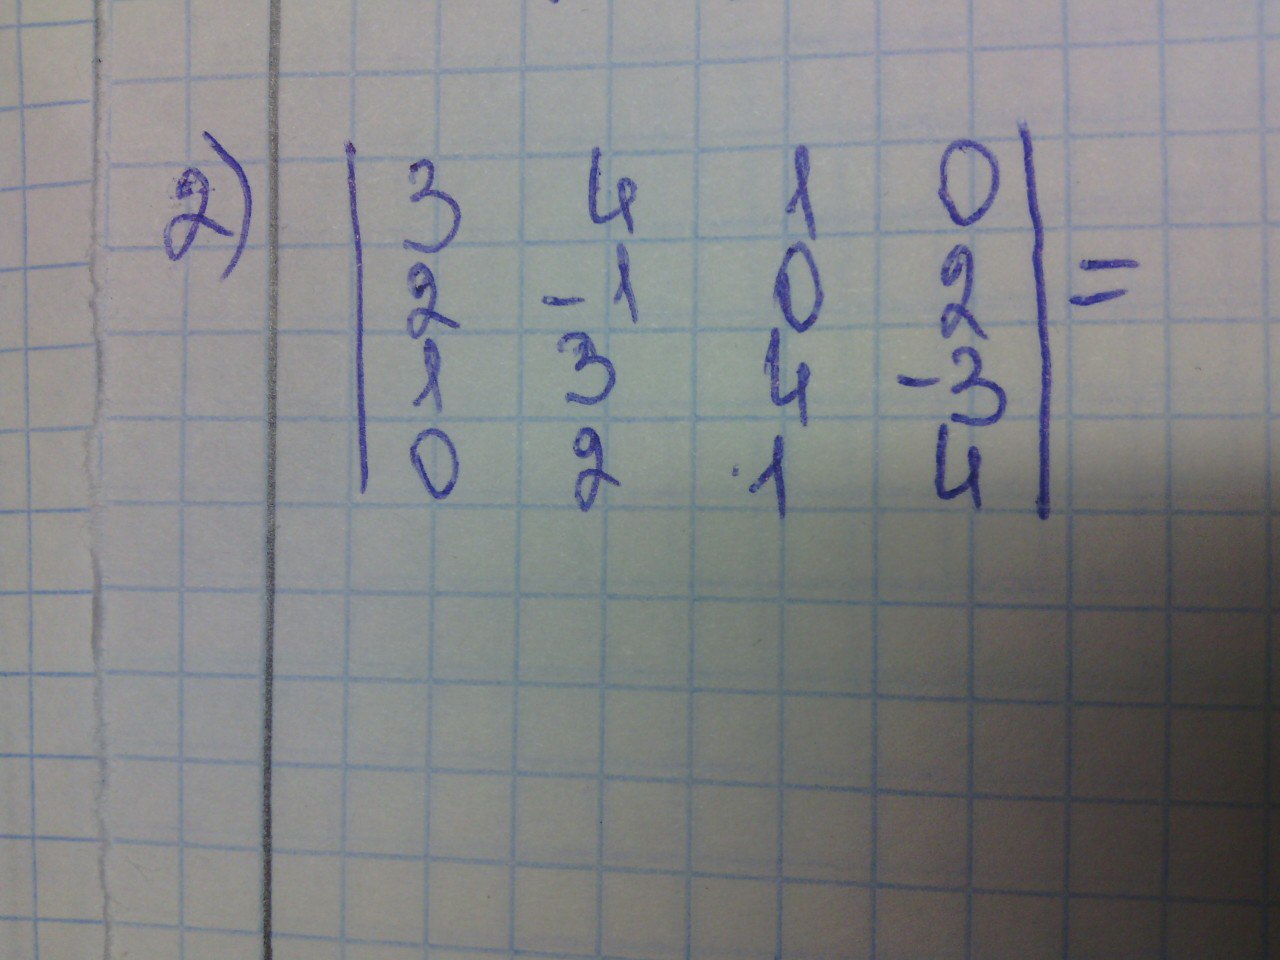 2) | 3 4 1 0 |
| 2 -1 0 2 | =
| 1 3 4 -3 |
| 0 2 1 4 |